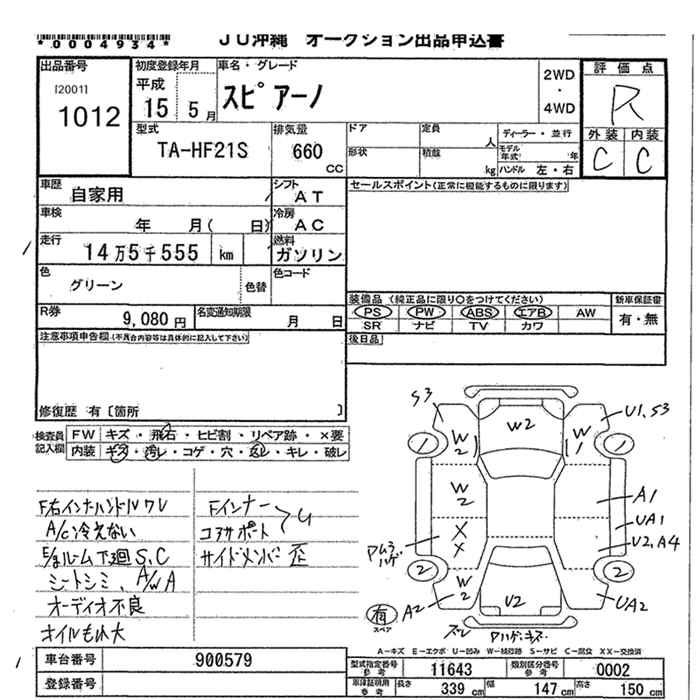 *0004934*
JU沖縄 オークション出品申込書
出品番号
[2001]
1012
初度登録年月
平成
15 5月
車名・グレード
スピアーノ
2WD
・
4WD
評価点
R
外装 内装
C C
型式
TA-HF21S
排気量
660
CC
ドア
定員
人
ディーラー・並行
形状
積載
kg
モデル年式 年
ハンドル 左・右
車歴
自家用
シフト
AT
車検
年 月( 日)
冷房
AC
走行
14万5千555 km
燃料
ガソリン
色
グリーン
色替
色コード
R券
9,080円
名変通知期限
月 日
セールスポイント(正常に機能するものに限ります)
装備品 (純正品に限り○をつけてください)
PS PW ABS エアB AW
SR ナビ TV カワ
新車保証書
有・無
後日品
注意事項申告欄(不具合内容等は具体的に記入して下さい)
修復歴 有〔箇所 〕
検査員記入欄
FW キズ・飛石・ヒビ割・リペア跡・×要
内装 キズ・汚レ・コゲ・穴・・キレ・破レ
F右インナーハンドルワレ
A/C冷えない
E/gルーム下廻S、C
シートシミ、A/W A
オーディオ不良
オイルもれ大
Fインナー
コアサポート
U
サイドメンバー歪
S3
U1、S3
W2
W2
W1
1
1
W2
A1
UA1
XX
U2、A4
ハゲ
2
2
W2
A2
U2
UA2
有
スペア
ズレ
Aハゲ・キズ
A−キズ E−エクボ U−凹み W−補修跡 S−サビ C−腐食 XX−交換済
車台番号
900579
登録番号
型式指定番号
参考
11643
類別区分番号
参考
0002
車庫証明用
参考
長さ 339 cm 幅 147 cm 高さ 150 cm